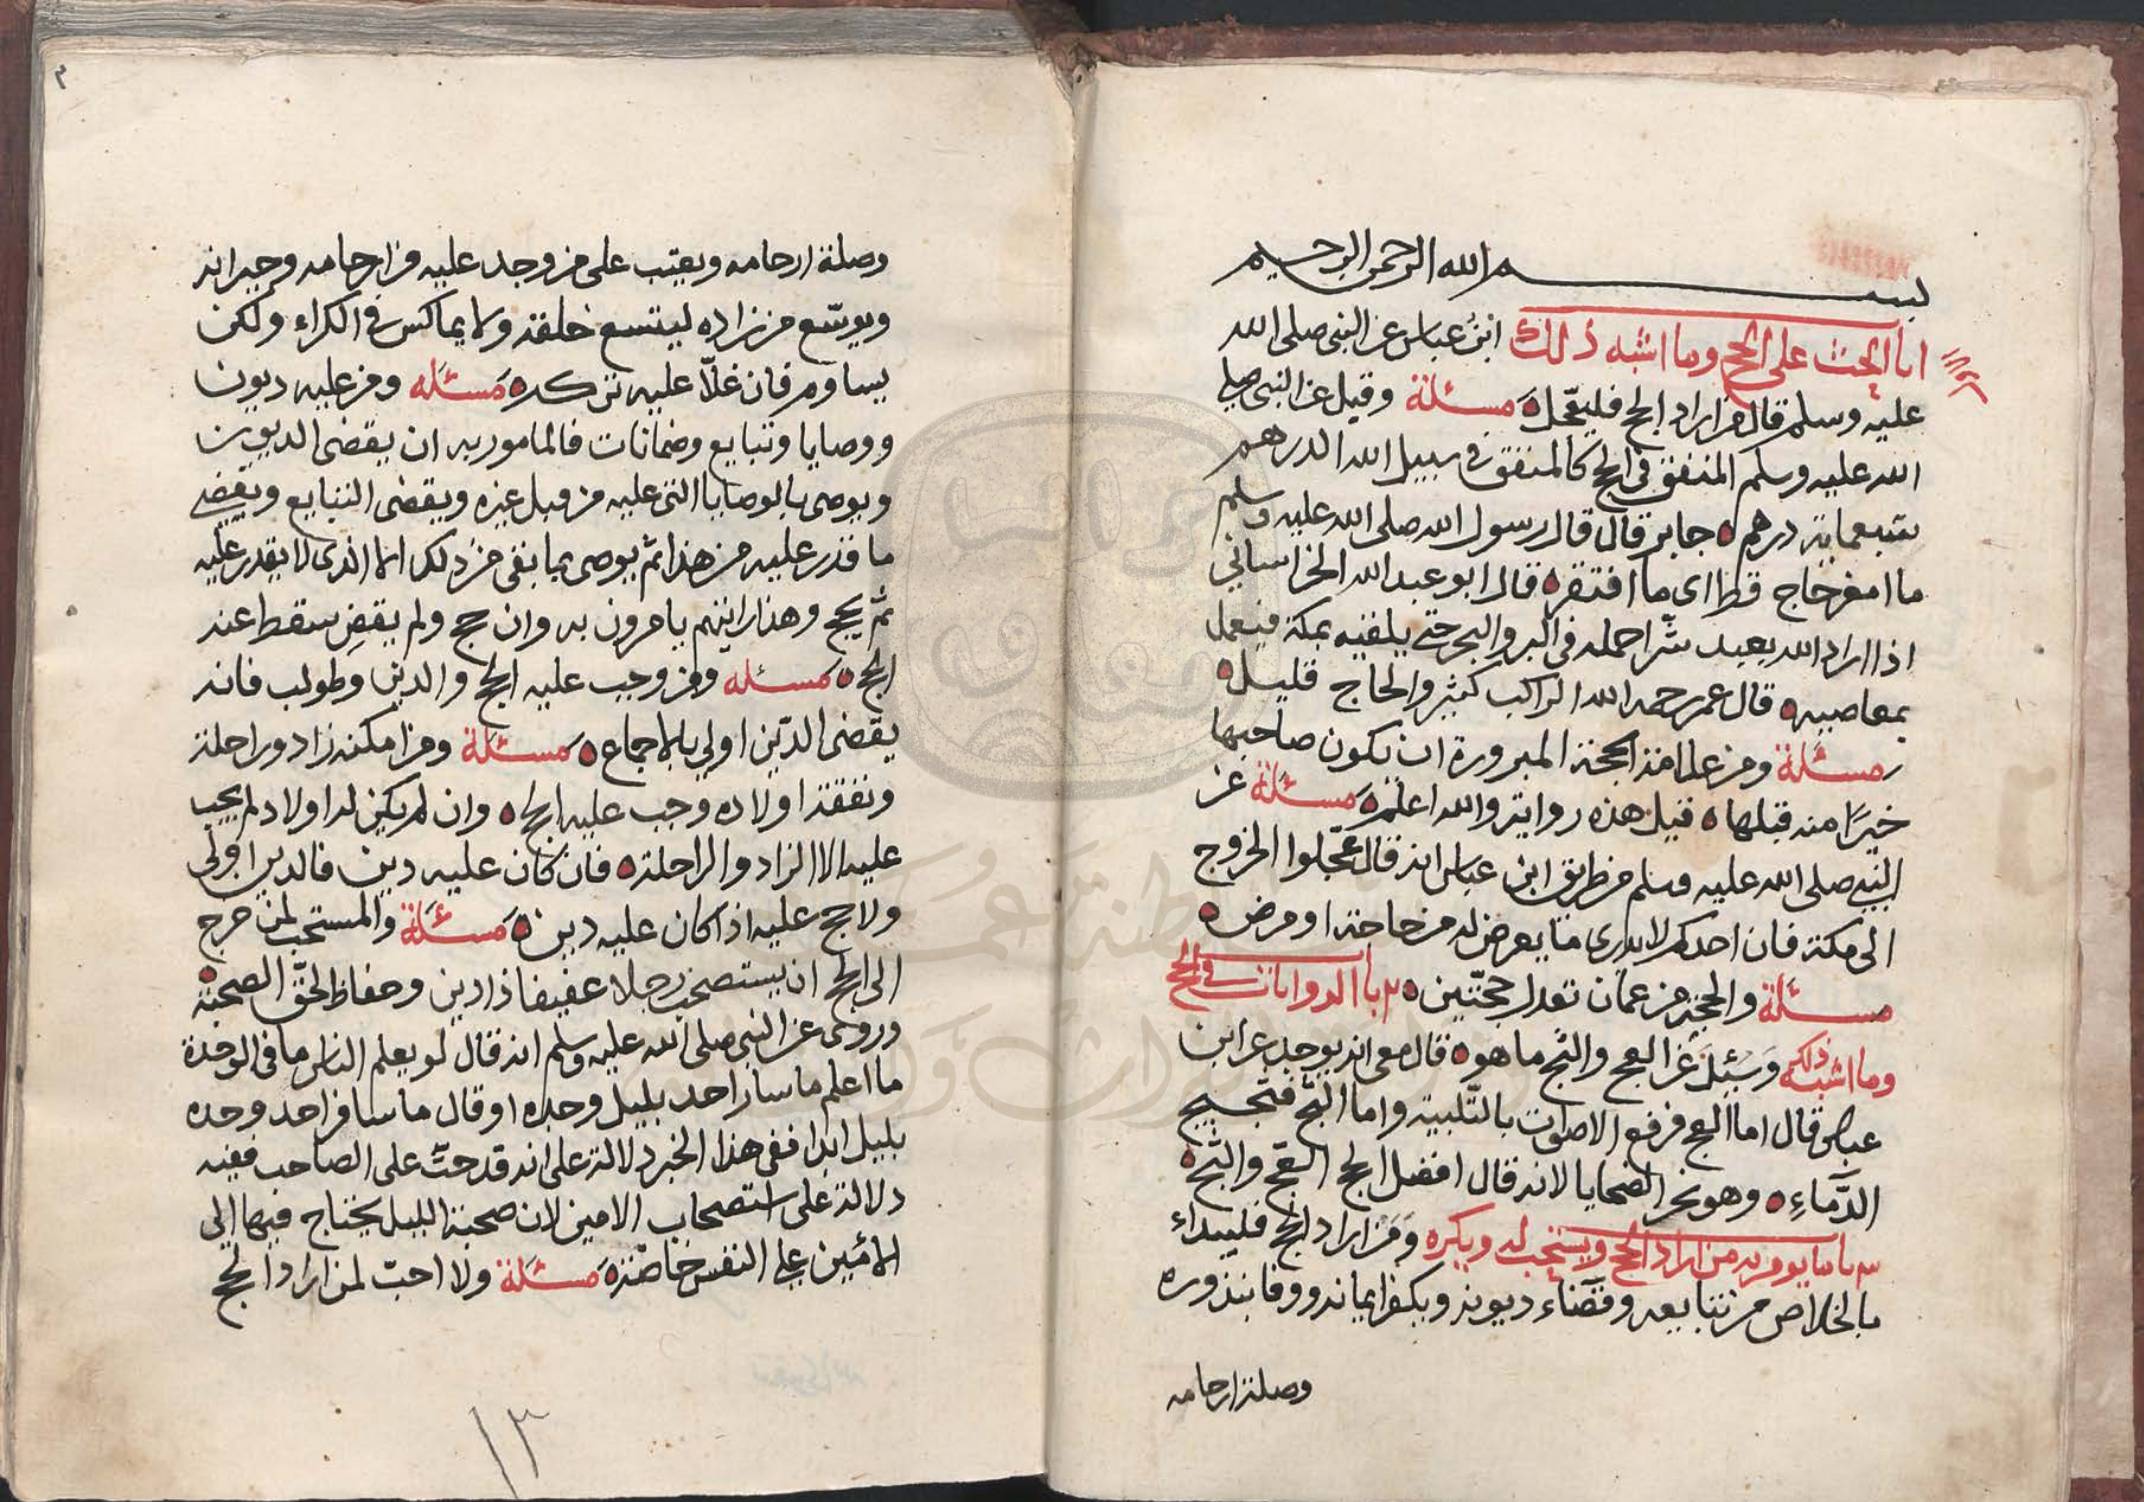 بسم الله الرحمن الرحيم
ا باب الحث على الحج وما اشبه ذلك ابن عباس عن النبي صلى الله
عليه وسلم قال من اراد الحج فليعجل مسئلة وقيل عن النبي صلى
الله عليه وسلم المنفق في الحج كالمنفق في سبيل الله الدرهم
بسبعماية درهم جابر قال قال رسول الله صلى الله عليه وسلم
ما امعر حاج قط اى ما افتقر قال ابو عبد الله الخراساني
اذا اراد الله بعبد شرا حمله في البر والبحر حتى يلقيه بمكة فيعمل
بمعاصيه قال عمر رحمه الله الراكب كثير والحاج قليل
مسئلة ومن علامة الحجة المبرورة ان يكون صاحبها
خيرا منه قبلها قيل هذه رواية والله اعلم مسئلة عن
النبي صلى الله عليه وسلم من طريق ابن عباس انه قال عجلوا الخروج
الى مكة فان احدكم لا يدرى ما يعرض له من حاجة او مرض
مسئلة والحجة من عمان تعدل حجتين ٢ باب الروايات في الحج
وما اشبه ذلك وسئل عن العج والثج ما هو قال معى انه يوجد عن ابن
عباس قال اما العج فرفع الاصوات بالتلبية واما الثج فثجيج
الدماء وهو نحر الضحايا لانه قال افضل الحج العج والثج
٣ باب ما يومر به من اراد الحج ويستحب له ويكره ومن اراد الحج فليبداء
بالخلاص من تبايعه وقضاء ديونه ويكفر ايمانه ووفا بنذوره
وصلة ارحامه
٢
وصلة ارحامه ويعتب على من وجد عليه من ارحامه وجيرانه
ويوسع من زاده ليتسع خلقه ولا يماكس في الكراء ولكن
يساوم فان غلا عليه تركه مسئله ومن عليه ديون
ووصايا وتبايع وضمانات فالمامور به ان يقضى الديون
ويوصى بالوصايا التى عليه من قبل غيره ويقضى التبايع ويقضي
ما قدر عليه من هذا ثم يوصى بما بقى من ذلك انما الذى لا يقدر عليه
ثم يحج وهذا رايتهم يامرون به وان حج ولم يقض سقط عنه
الحج مسئله ومن وجب عليه الحج والدين وطولب فانه
يقضى الدين اولى بالاجماع مسئلة ومن امكنه زاد وراحلة
ونفقة اولاده وجب عليه الحج وان لم يكن له اولاد لم يجب
عليه الا الزاد والراحلة فان كان عليه دين فالدين اولى
ولا حج عليه اذا كان عليه دين مسئلة والمستحب لمن خرج
الى الحج ان يستصحب رجلا عفيفا ذا دين وحفاظ لحق الصحبة
وروى عن النبي صلى الله عليه وسلم انه قال لو يعلم الناس ما في الوحدة
ما اعلم ما سار احد بليل وحده او قال ما سافر احد وحده
بليل ابدا ففي هذا الخبر دلالة على انه قد حث على الصاحب ففيه
دلالة على استصحاب الامين لان صحبة الليل يحتاج فيها الى
الامين على النفس خاصة مسئلة ولا احب لمن اراد الحج
١٣